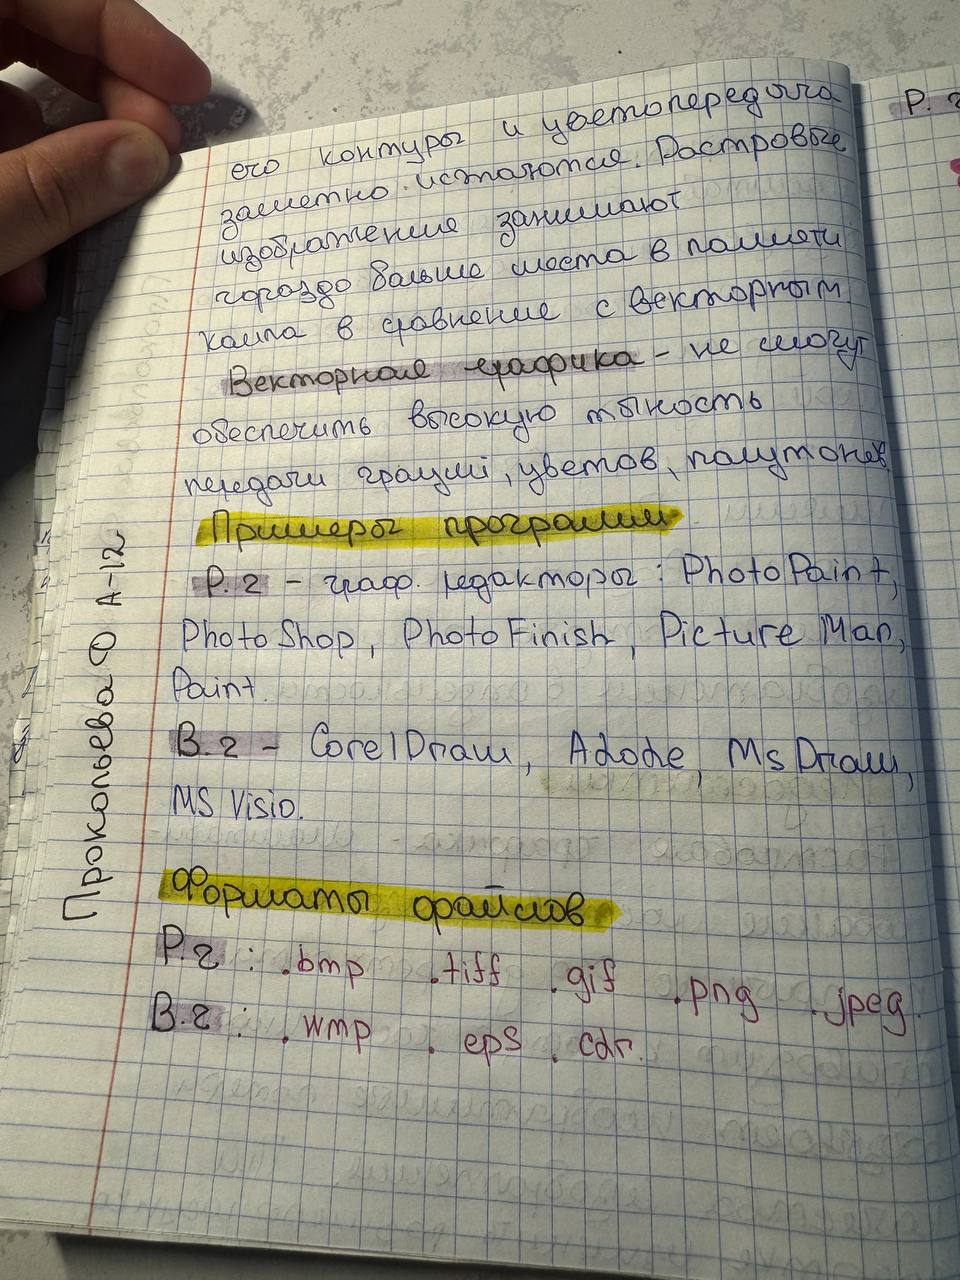 его контуры и цветопередача
заметно искажаются. Растровые
изображение занимают
гораздо больше места в памяти
компа в сравнение с векторным
Векторная графика - не смогут
обеспечить высокую тчность
передачи граций, цветов, полутонов
Примеры программ
Р.г - граф. редакторы: PhotoPaint,
PhotoShop, PhotoFinish, Picture Man,
Paint.
В.г - CorelDraw, Adode, Ms Draw,
MS Visio.
Форматы файлов
Р.г : .bmp .tiff .gif .png .jpeg.
В.г : .wmp . eps . cdr.
Прокопьева Ф А-12
Р. г